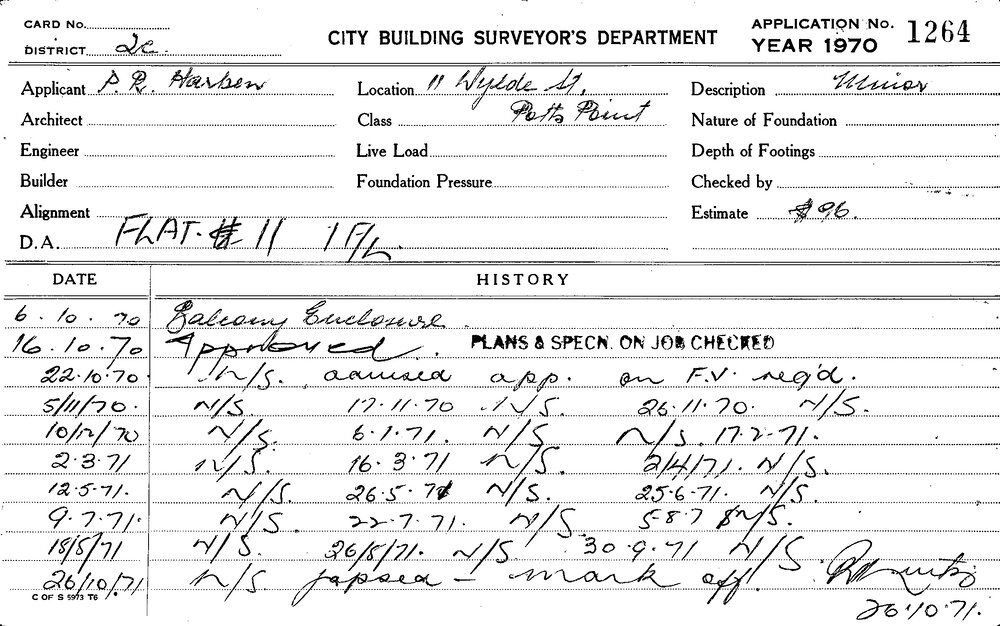 CARD No.
DISTRICT 2c.
CITY BUILDING SURVEYOR'S DEPARTMENT
APPLICATION No. 1264
YEAR 1970
Applicant P. R. Harben Location 11 Wylde St, Description Minor
Architect Class Potts Point Nature of Foundation
Engineer Live Load Depth of Footings
Builder Foundation Pressure Checked by
Alignment Estimate $96.
D.A. FLAT. # 11 1 F/L.
DATE HISTORY
6.10.70 Balcony Enclosure.
16.10.70 Approved. PLANS & SPECN. ON JOB CHECKED
22.10.70. N/S. advised app. on F.V. req'd.
5/11/70. N/S. 17.11.70 N/S. 26.11.70. N/S.
10/12/70 N/S. 6.1.71. N/S N/S. 17.2.71.
2.3.71 N/S. 16.3.71 N/S. 2/4/71. N/S.
12.5.71. N/S. 26.5.71 N/S. 25.6.71. N/S.
9.7.71. N/S. 22.7.71. N/S. 5.8.7 N/S.
18/8/71 N/S. 26/8/71. N/S 30.9.71 N/S
26/10/71 N/S lapsed - mark off.
C OF S 5973 T6
26.10.71.